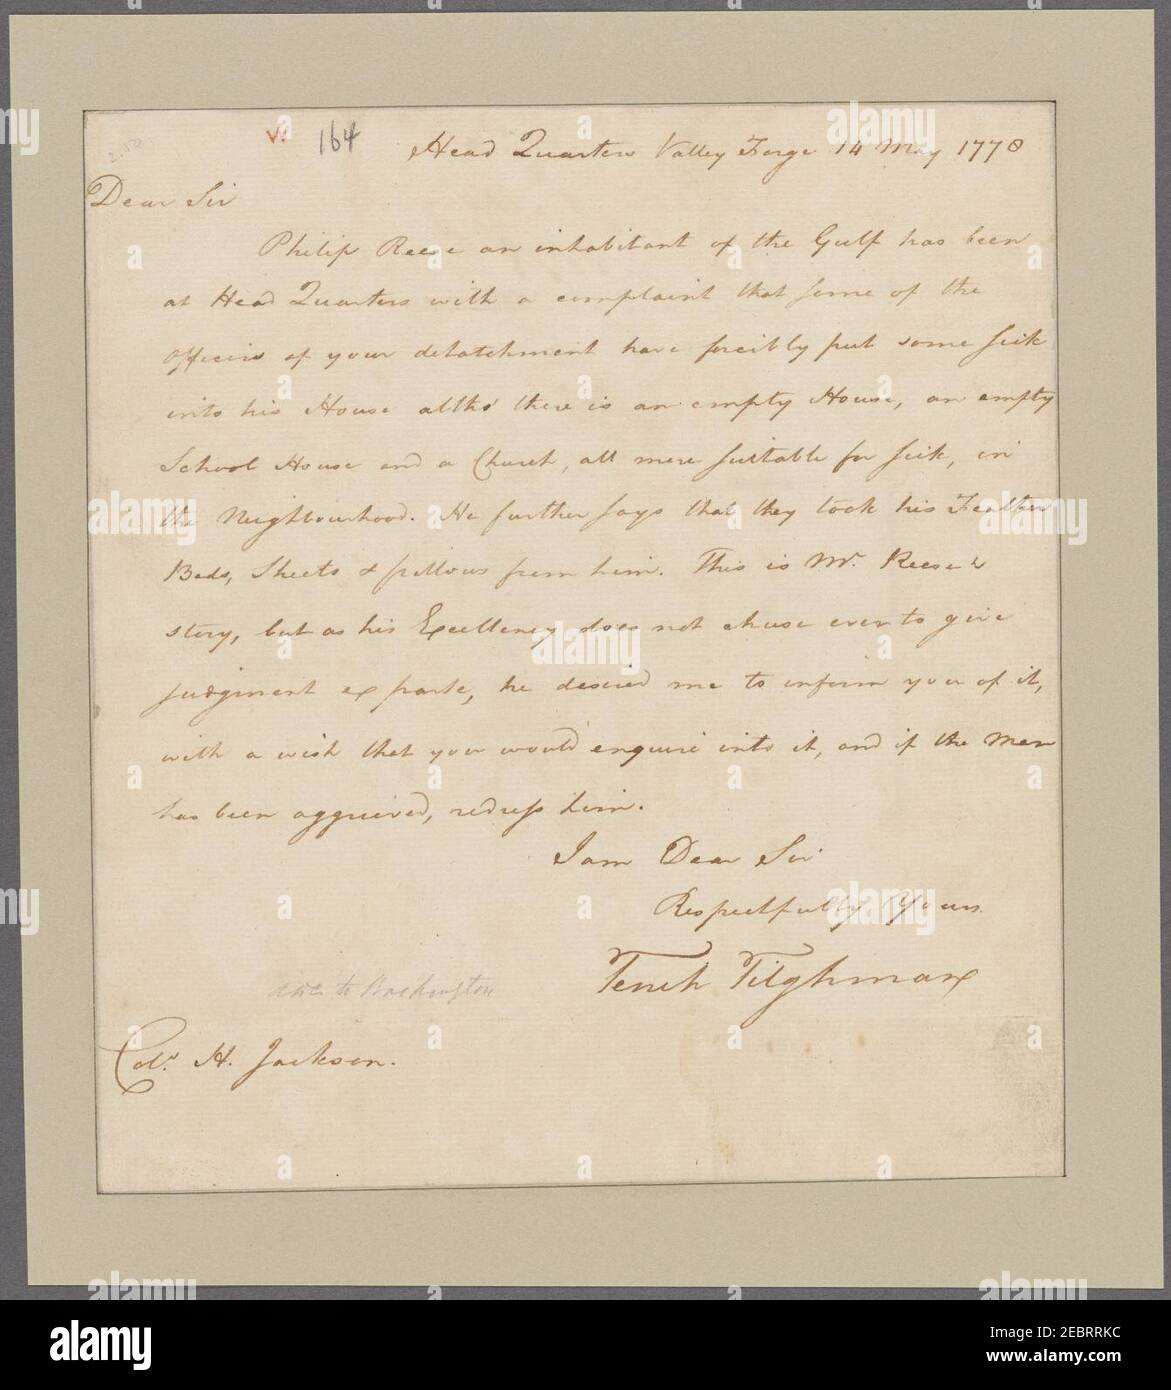 W 164
Head Quarters Valley Forge 14 May 1778
Dear Sir
Philip Reese an inhabitant of the Gulf has been
at Head Quarters with a complaint that some of the
Officers of your detatchment have forcibly put some sick
into his House altho' there is an empty House, an empty
School House and a Church, all more suitable for sick, in
the Neighbourhood. He further says that they took his Feather
Beds, Sheets & pillows from him. This is Mr. Reese's
story, but as his Excellency does not chuse ever to give
judgment ex parte, he desired me to inform you of it,
with a wish that you would enquire into it, and if the Man
has been aggrieved, redress him.
I am Dear Sir
Respectfully Yours
Tench Tilghman
adc to Washington
Colo. H. Jackson.
alamy
Image ID: 2EBRRKC
www.alamy.com